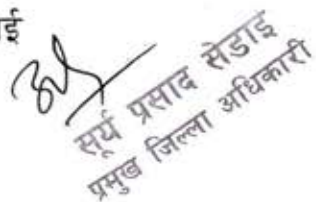 ई
सूर्य प्रसाद सेडाई
प्रमुख जिल्ला अधिकारी